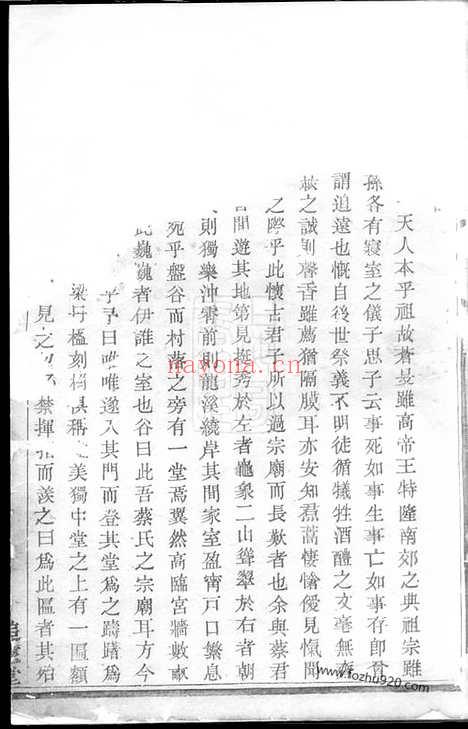 天人本乎祖故蒼旻雖高帝王特隆南郊之典祖宗雖
孫各有寢室之儀子思子云事死如事生事亡如事存即
謂追遠也慨自後世祭義不明徒循犧牲酒醴之文毫無
之誠則馨香雖薦猶隔膜耳亦安知焄蒿悽愴僾見愾聞
之際乎此懷古君子所以過宗廟而長歎者也余與蔡君
間遊其地第見撫秀於左者龜象二山聳翠於右者朝
則獨樂沖霄前則龍溪繞岸其間家室盈甯戶口繁息
宛乎盤谷而村落之旁有一堂焉翼然高臨宮牆數畝
此巍巍者伊誰之室也谷曰此吾蔡氏之宗廟耳方今
曰唯唯遂入其門而登其堂為之躊躇為
梁 楹刻桷具稱 美獨中堂之上有一匾額
見之 禁揮 而羨之曰為此匾者其殆
nayona.cn
www.fozhu920.com